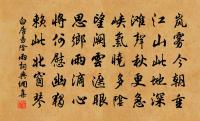 嵐霧今朝重
江山此地深
灘聲秋更急
峽氣曉多陰
望闕雲遮眼
思鄉雨滴心
將何慰幽獨
賴此北窗琴
白居易陰雨詞典網集